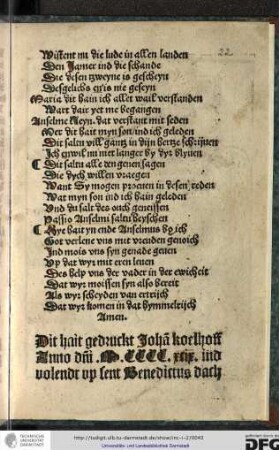 22
Wisten nu die lude in allen landen
Den Jamer ind die schande
Die desen tzweyne is gescheyn
Desgelichs en is nie geseyn
Maria dit hain ich allet wail verstanden
Wart dair yet me begangen
Anselme Neyn. dat verstant mit seden
Mer dit hait myn son ind ich geleden
Dit saltu vill gantz in dijn hertze schrijuen
Ich enwil nu niet langer by dyr blyuen
Dit saltu alle den genen sagen
Die dych willen vraegen
Want Sy mogen in desen reden
Wat myn son ind ich hain geleden
Vnd du salt des ouch geneissen
Passio Anselmi saltu heyschen
Hye hait yn ende Anselmus boich
Got verlene vns mit vreuden genoich
Ind mois vns syn genade geuen
Vp dat wyr mit eren leuen
Des help vns der vader in der ewicheit
Dat wyr moissen syn also bereit
Als wyr scheyden van ertrijch
Dat wyr komen in dat hymmelrijch
Amen.
Dit hait gedruckt Johān koelhoff
Anno dn̄i. M.CCCC. xcix. ind
volendt vp sent Benedictus dach
TECHNISCHE UNIVERSITÄT DARMSTADT
http://tudigit.ulb.tu-darmstadt.de/show/inc-i-2/0043
Universitäts- und Landesbibliothek Darmstadt
gefördert durch
DFG